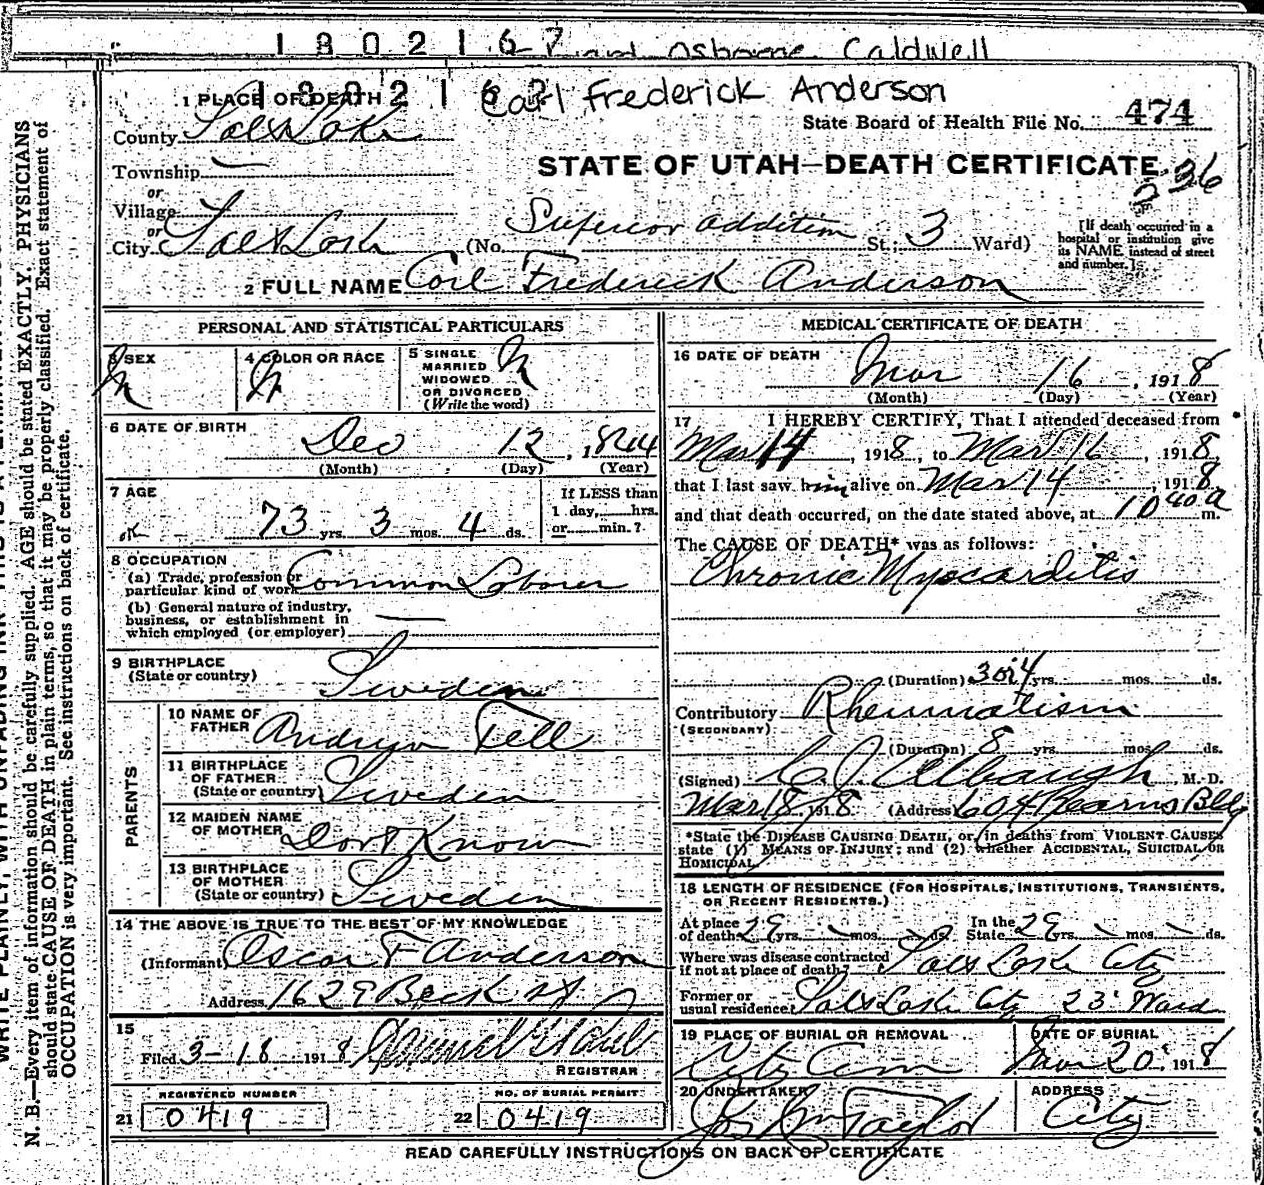 1802167 and Osborne Caldwell
1802167 Carl Frederick Anderson
1 PLACE OF DEATH
State Board of Health File No. 474
County Salt Lake
STATE OF UTAH—DEATH CERTIFICATE
236
Township —
or
Village
or
City Salt Lake (No. Superior addition St.; 3 Ward)
[If death occurred in a hospital or institution give its NAME instead of street and number.]
2 FULL NAME Carl Frederick Anderson
PERSONAL AND STATISTICAL PARTICULARS
3 SEX M
4 COLOR OR RACE W
5 SINGLE MARRIED WIDOWED OR DIVORCED (Write the word) M
6 DATE OF BIRTH Dec 12, 1844
(Month) (Day) (Year)
7 AGE
ok 73 yrs. 3 mos. 4 ds.
If LESS than
1 day, hrs.
or min.?
8 OCCUPATION
(a) Trade, profession or
particular kind of work Common Laborer
(b) General nature of industry,
business, or establishment in
which employed (or employer) —
9 BIRTHPLACE
(State or country) Sweden
PARENTS
10 NAME OF
FATHER Andrew Tell
11 BIRTHPLACE
OF FATHER
(State or country) Sweden
12 MAIDEN NAME
OF MOTHER Dont Know
13 BIRTHPLACE
OF MOTHER
(State or country) Sweden
14 THE ABOVE IS TRUE TO THE BEST OF MY KNOWLEDGE
(Informant) Oscar F Anderson
Address 1629 Beck St
15
Filed 3-18 1918
REGISTRAR
REGISTERED NUMBER
21 0419
NO. OF BURIAL PERMIT
22 0419
MEDICAL CERTIFICATE OF DEATH
16 DATE OF DEATH
Mar 16, 1918
(Month) (Day) (Year)
17 I HEREBY CERTIFY, That I attended deceased from
Mar 14, 1918, to Mar 16, 1918,
that I last saw him alive on Mar 14, 1918,
and that death occurred, on the date stated above, at 10 40 a m.
The CAUSE OF DEATH* was as follows:
Chronic Myocarditis
(Duration) 3 or 4 yrs. mos. ds.
Contributory Rheumatism
(SECONDARY)
(Duration) 8 yrs. mos. ds.
(Signed) C. J. Albaugh, M.D.
Mar 18, 1918 (Address) 604 Kearns Bldg
*State the DISEASE CAUSING DEATH, or, in deaths from VIOLENT CAUSES
state (1) MEANS OF INJURY; and (2) whether ACCIDENTAL, SUICIDAL OR
HOMICIDAL.
18 LENGTH OF RESIDENCE (FOR HOSPITALS, INSTITUTIONS, TRANSIENTS,
OR RECENT RESIDENTS.)
At place of death 29 yrs. - mos. - ds. In the State 29 yrs. - mos. - ds.
Where was disease contracted
if not at place of death? Salt Lake City
Former or
usual residence Salt Lake City 23' Ward
19 PLACE OF BURIAL OR REMOVAL
City Cem
DATE OF BURIAL
Mar 20, 1918
20 UNDERTAKER
Jos Wm Taylor
ADDRESS
City
READ CAREFULLY INSTRUCTIONS ON BACK OF CERTIFICATE
N. B.—Every item of information should be carefully supplied. AGE should be stated EXACTLY. PHYSICIANS
should state CAUSE OF DEATH in plain terms, so that it may be properly classified. Exact statement of
OCCUPATION is very important. See instructions on back of certificate.